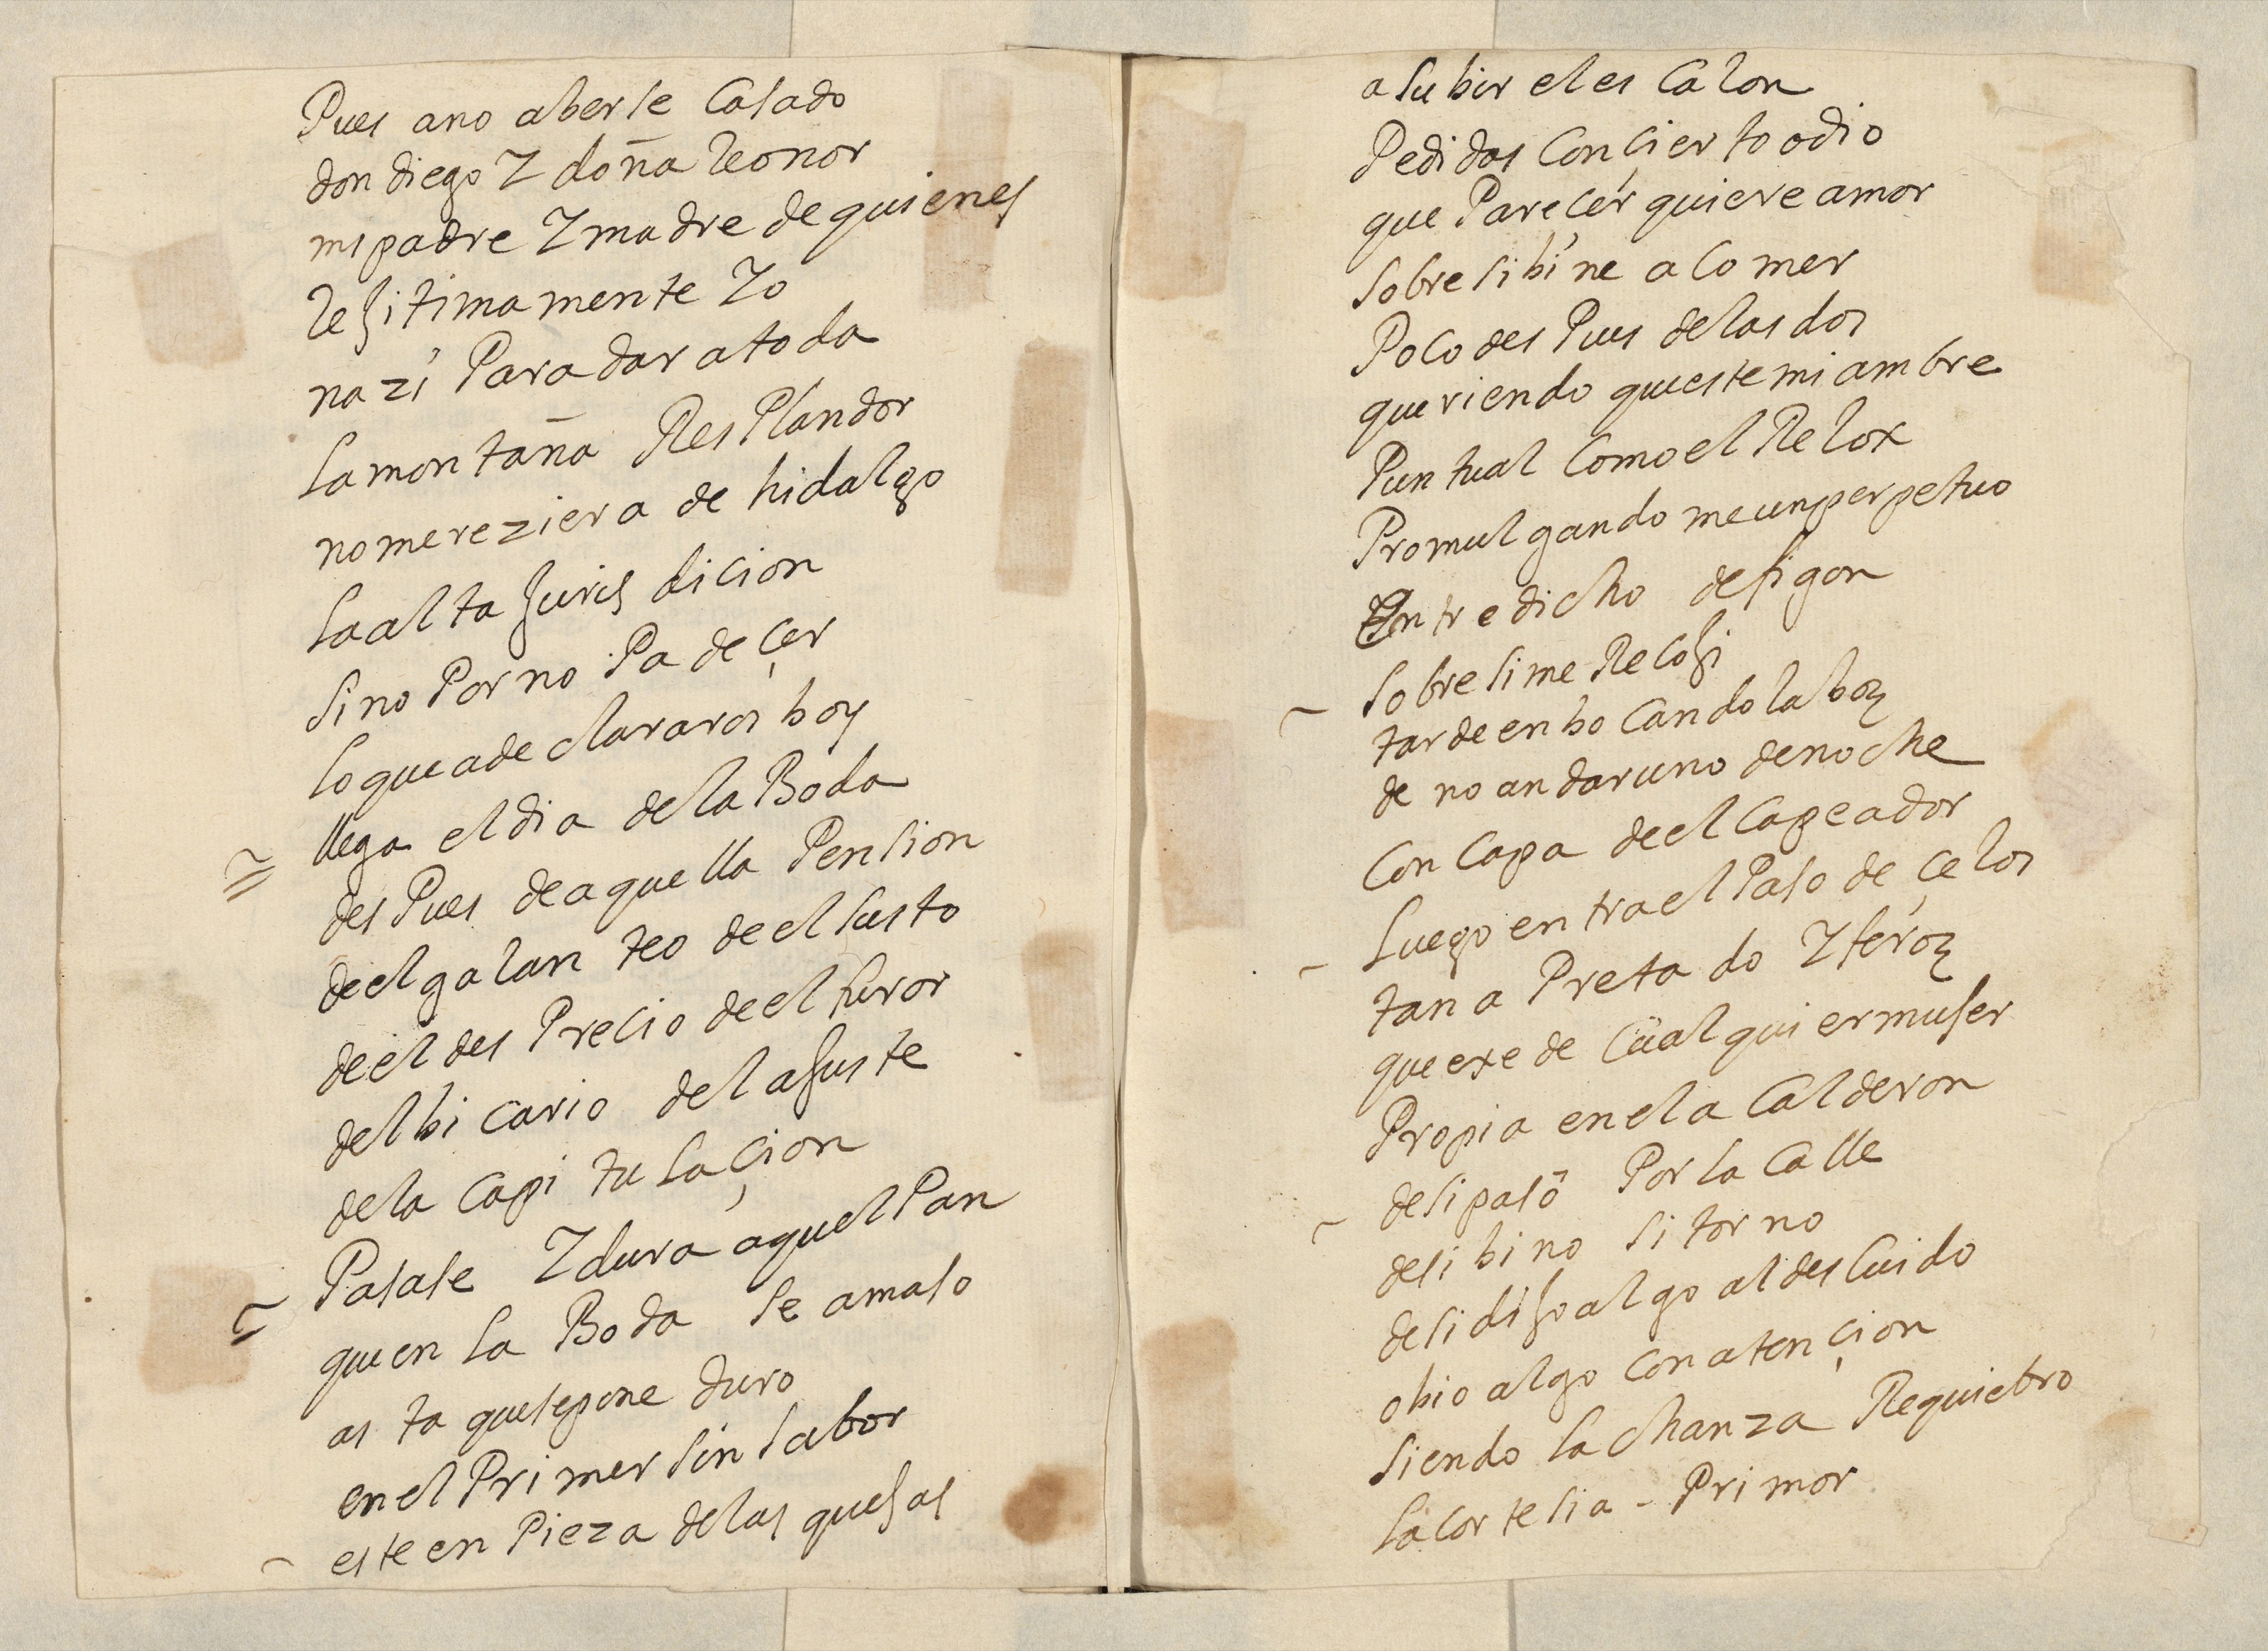 Pues ano aberse Casado
don diego Y doña leonor
mi padre Y madre de quienes
lejitimamente Yo
nazí Para dar a toda
la montaña ResPlandor
no mereziera de hidalgo
la alta jurisdicion
sino Por no Padeçer
lo que a declararos boy
llega el dia de la Boda
desPues de aquella Pension
de el galanteo de el susto
de el desPrecio de el furor
del bicario del ajuste
de la capitulaçion
Pasase Y dura aquel Pan
quen la Boda se amaso
asta que se pone duro
en el Primer sin sabor
este enPieza de las quejas
a subir el escalon
Pedidas Con çierto odio
que Pareçer quiere amor
sobre si bíne a Comer
Poco desPues de las dos
queriendo queste mi ambre
Puntual Como el Relox
Promulgandome un perpetuo
Entredicho de figon
sobre si me Recoji
tarde enbocando la boz
de no andar uno de noche
Con Capa de el Capeador
luego entra el Paso de çelos
tan aPretado Y feroz
que exede Cüalquier mujer
Propia en el a Calderon
de si pasó Por la Calle
de si bino si torno
de si dijo algo al descuido
o bio algo con atençion
siendo la chanza Requiebro
la cortesia - Primor